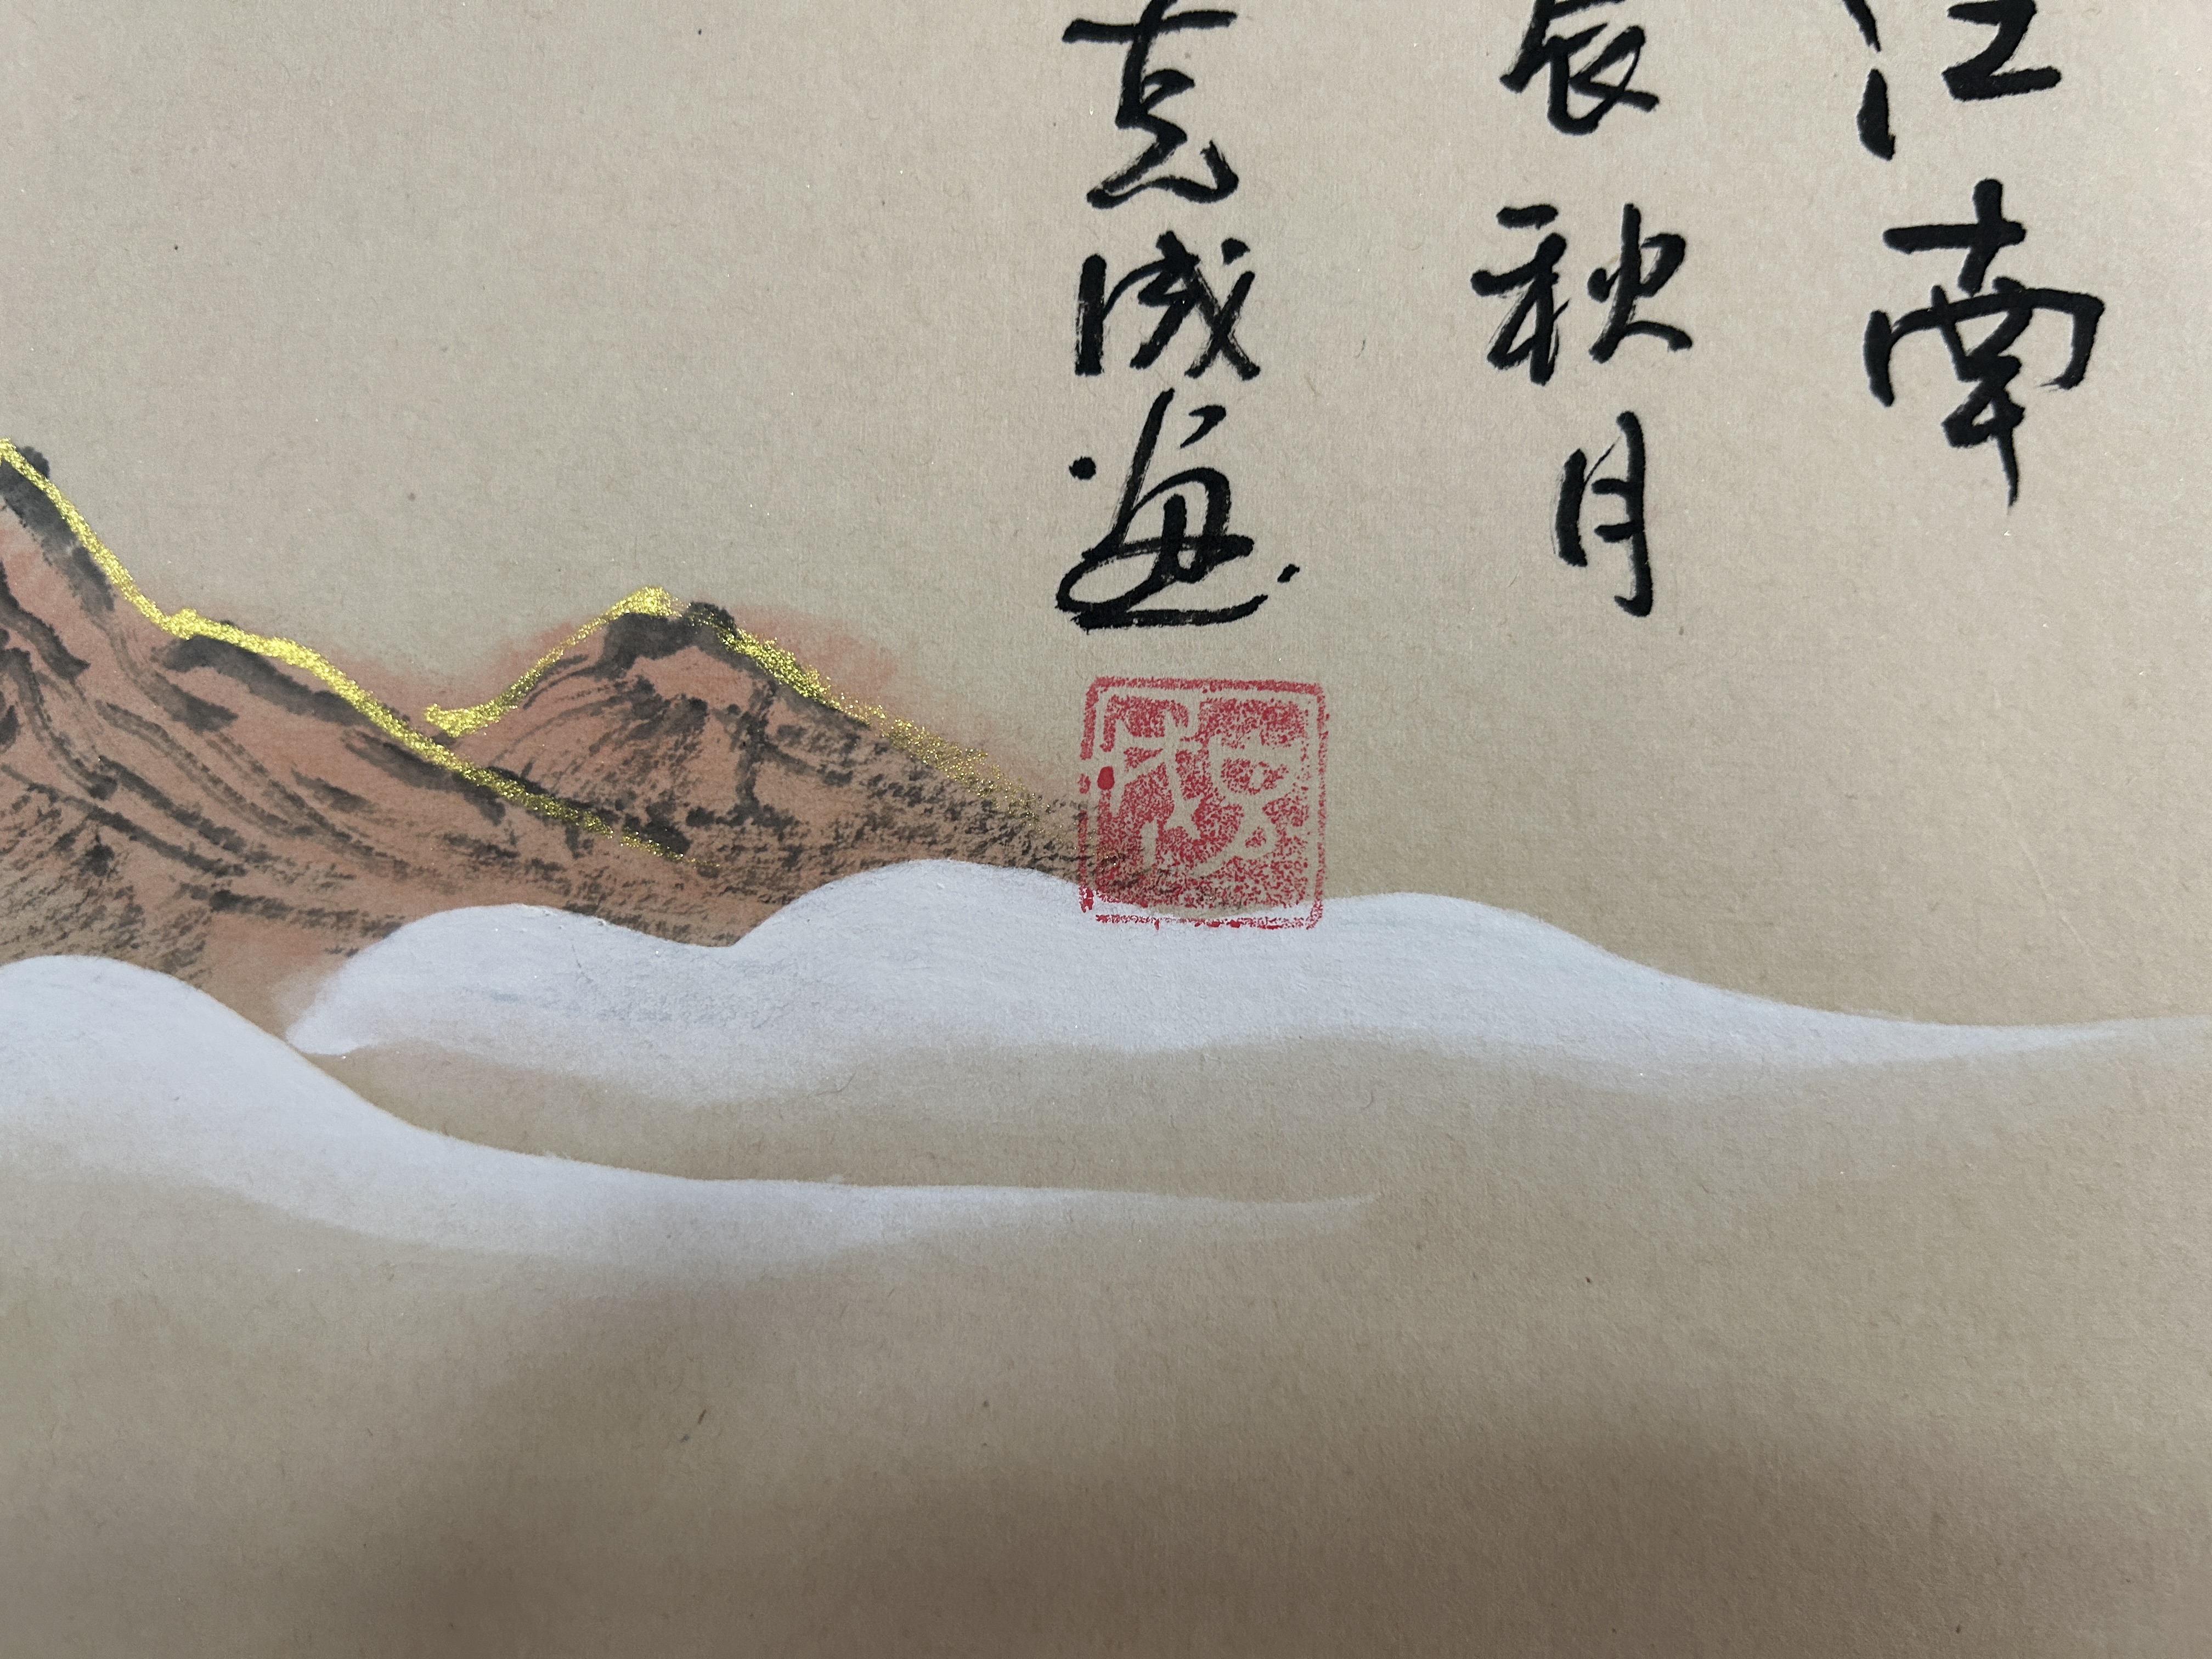 江南
辰秋月
志成画